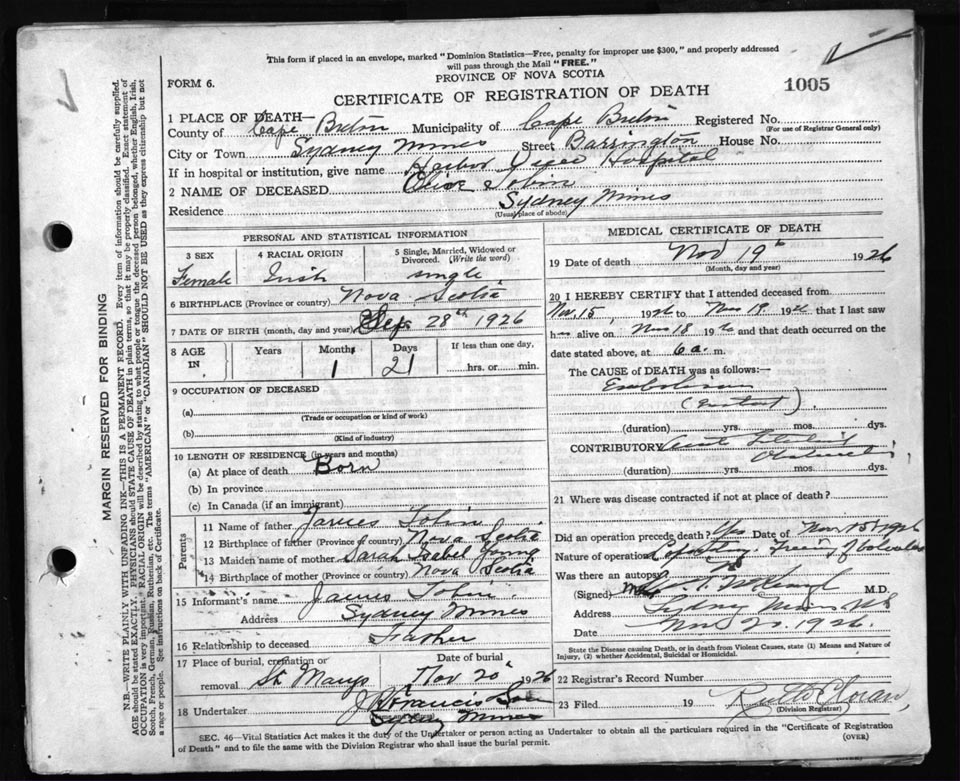 This form if placed in an envelope, marked "Dominion Statistics—Free, penalty for improper use $300," and properly addressed
will pass through the Mail "FREE."
FORM 6.
PROVINCE OF NOVA SCOTIA
CERTIFICATE OF REGISTRATION OF DEATH
1005
1 PLACE OF DEATH—
County of Cape Breton Municipality of Cape Breton Registered No.
(For use of Registrar General only)
City or Town Sydney Mines Street Barrington House No.
If in hospital or institution, give name Harbor View Hospital
2 NAME OF DECEASED Olive Tobin
Residence Sydney Mines
(Usual place of abode)
PERSONAL AND STATISTICAL INFORMATION
3 SEX
Female
4 RACIAL ORIGIN
Irish
5 Single, Married, Widowed or
Divorced. (Write the word)
single
6 BIRTHPLACE (Province or country) Nova Scotia
7 DATE OF BIRTH (month, day and year) Sep 28th 1926
8 AGE IN Years Months Days If less than one day,
1 21 hrs. or min.
9 OCCUPATION OF DECEASED
(a)
(Trade or occupation or kind of work)
(b)
(Kind of industry)
10 LENGTH OF RESIDENCE (in years and months)
(a) At place of death Born
(b) In province
(c) In Canada (if an immigrant)
Parents
11 Name of father James Tobin
12 Birthplace of father (Province or country) Nova Scotia
13 Maiden name of mother Sarah Isabel Young
14 Birthplace of mother (Province or country) Nova Scotia
15 Informant's name James Tobin
Address Sydney Mines
16 Relationship to deceased Father
17 Place of burial, cremation or
removal St. Marys
Date of burial
Nov 20 1926
18 Undertaker J Francis & Son
Sydney Mines
MEDICAL CERTIFICATE OF DEATH
19 Date of death Nov 19th 1926
(Month, day and year)
20 I HEREBY CERTIFY that I attended deceased from
Nov. 15, 1926 to Nov 19 1926 that I last saw
h alive on Nov 18 1926 and that death occurred on the
date stated above, at 6 a. m.
The CAUSE of DEATH was as follows:—
Embolism
(duration) yrs. mos. dys.
CONTRIBUTORY Acute Intestinal
Obstruction
(duration) yrs. mos. dys.
21 Where was disease contracted if not at place of death?
Did an operation precede death? Yes Date of Nov 15 1926
Nature of operation Freeing of
Was there an autopsy No
(Signed) M.D.
Address Sydney Mines N.S
Date Nov 20. 1926.
State the Disease causing Death, or in death from Violent Causes, state (1) Means and Nature of
Injury, (2) whether Accidental, Suicidal or Homicidal.
22 Registrar's Record Number
23 Filed 19
(Division Registrar)
SEC. 46—Vital Statistics Act makes it the duty of the Undertaker or person acting as Undertaker to obtain all the particulars required in the "Certificate of Registration
of Death" and to file the same with the Division Registrar who shall issue the burial permit.
(OVER)
MARGIN RESERVED FOR BINDING
N.B.—WRITE PLAINLY WITH UNFADING INK—THIS IS A PERMANENT RECORD. Every item of information should be carefully supplied.
AGE should be stated EXACTLY. PHYSICIANS should STATE CAUSE OF DEATH in plain terms, so that it may be properly classified. Exact statement of
OCCUPATION is very important. RACIAL ORIGIN will be described by stating to what people or tongue the deceased person belonged, whether English, Irish,
Scotch, French, German, Russian, Ruthenian, etc. The terms "AMERICAN" or "CANADIAN" SHOULD NOT BE USED as they express citizenship but not
a race or people. See instructions on back of Certificate.